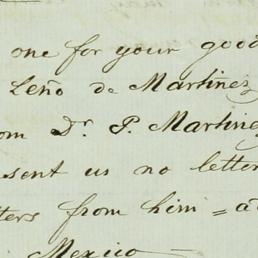 one for your good
Leño de Martinez
om Dr. P. Martinez
sent us no letter
tters from him = a
Mexico